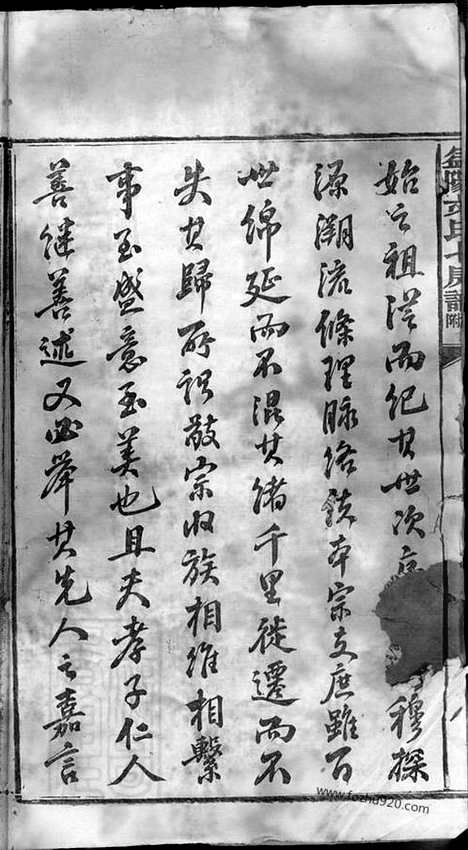 氏七房譜附
始之祖從而纪其世次穆探
源溯流條理脉络本宗支庶雖百
世綿延而不混其緒千里徙遷而不
失其歸所謂敬宗收族相維相繫
事至盛意至美也且夫孝子仁人
善继善述又必舉其先人之嘉言
www.fozhu920.com